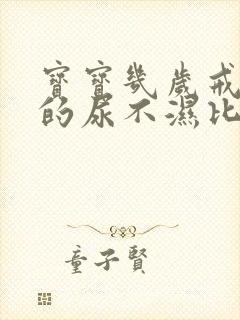 寶寶幾歲戒
的尿不濕比
童子賢